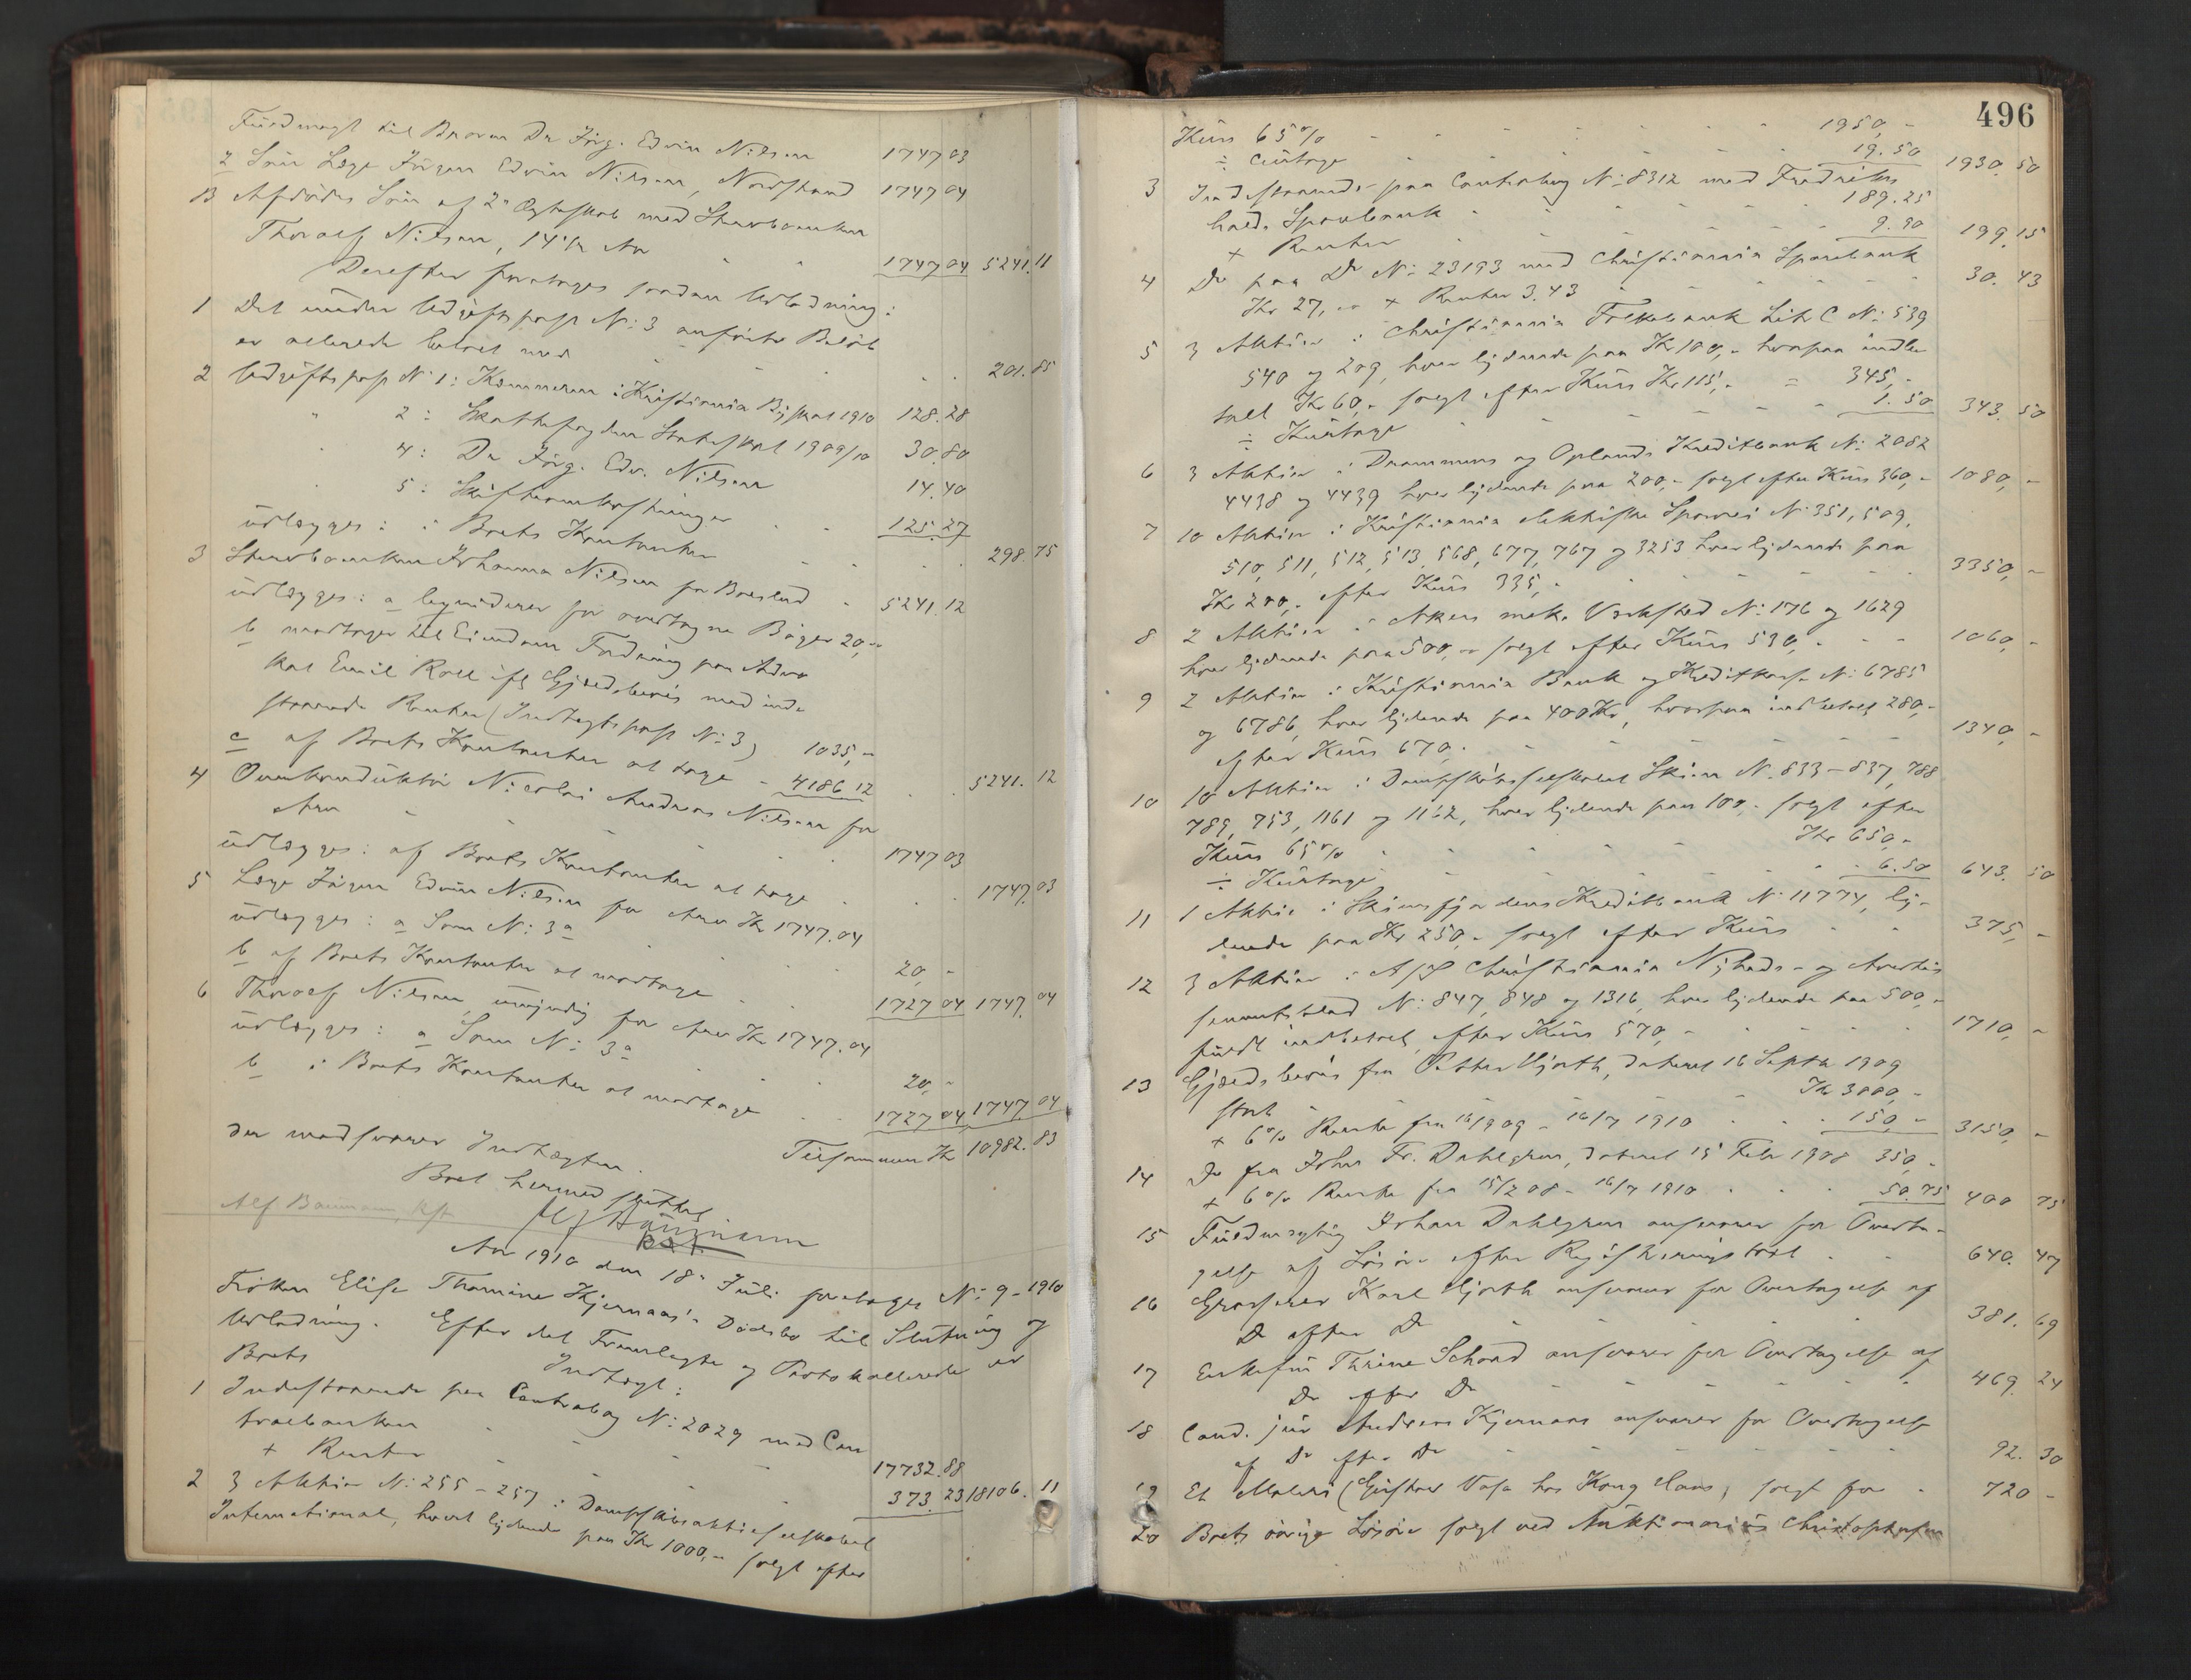 Fuldmagt til Broren Dr Jörg. Edvin Nilsen 1747 03
2 Sön Læge Jörgen Edvin Nilsen, Nordstrand 1747 04
B Afdödes Sön af 2º Ægteskab med Stervboenken
Thoralf Nilsen, 14 1/2 Aar 1747 04 5241. 11
Derefter foretoges saadan Udlodning:
1 Det under Udgiftspost N: 3 anförte Belöb
er allerede betalt med 201. 85
2 Udgiftspost N: 1: Kemneren i Kristiania Byskat 1910 128. 28
" 2: Skattefogden Statsskat 1909/10 30. 80
" 4: Dr Jörg. Edv. Nilsen 14. 40
5: Skifteomkostninger 125. 27
udlægges: i Boets Kontanter 298. 75
3 Stervboenken Johanna Nilsen for Boeslod 5241. 12
udlægges: a liqviderer for overtagne Böger 20,-
b modtager til Eiendom Fordring paa Advo
kat Emil Roll ifl Gjældsbevis med inde
staaende Renter (Indtægtspost N: 3) 1035,-
c af Boets Kontanter at tage 4186 12 5241. 12
4 Ovnkonduktör Nicolai Andreas Nilsen for
Arv 1747 03
udlægges: af Boets Kontanter at tage 1747. 03
5 Læge Jörgen Edvin Nilsen for Arv Kr 1747. 04
udlægges: a Som N: 3a 20,-
b af Boets Kontanter at modtage 1727 04 1747. 04
6 Thoralf Nilsen, umyndig for Arv Kr 1747. 04
udlægges: a Som N: 3a 20,-
b i Boets Kontanter at modtage 1727 04 1747. 04
Tilsammen Kr 10982. 83
der modsvarer Indtægten.
Boet hermed sluttet
Alf Baumann, kst
Alf Baumann
kst.
Aar 1910 den 18. Juli foretoges N: 9 - 1910
Fröken Elise Thomine Kjernaas's Dödsbo til Slutning og
Udlodning. Efter det Fremlagte og Protokollerede er
Boets Indtægt:
1 Indestaaende paa Contrabog N: 2029 med Cen
tralbanken 17732. 88
+ Renter 373. 23 18106. 11
2 3 Aktier N: 255 - 257 i Dampskibsaktieselskabet
International, hvert lydende paa Kr 1000,- solgt efter
496
Kurs 65% 1950,-
÷ Courtage 19. 50 1930. 50
3 Indestaaende paa Contrabog N: 8312 med Fredriks
hald. Sparebank 189. 25
+ Renter 9. 90 199. 15
4 Do paa Do N: 23193 med Christiania Sparebank
Kr 27,00 + Renter 3. 43 30. 43
5 3 Aktier i Christiania Folkebank Litr C N: 539
540 og 209, hver lydende paa Kr 100,- hvorpaa indbe
talt Kr 60,- solgt efter Kurs Kr 115,- = 345,-
÷ Kurtage 1. 50 343. 50
6 3 Aktier i Drammens og Oplands Kreditbank N: 2082
4438 og 4439 hver lydende paa 200,- solgt efter Kurs 360,- 1080,-
7 10 Aktier i Kristiania elektriske Sporvei N: 351, 509,
510, 511, 512, 513, 568, 677, 767 og 3253 hver lydende paa
Kr 200,- efter Kurs 335,- 3350,-
8 2 Aktier i Akers mek. Verksted N: 176 og 1629
hver lydende paa 500,- solgt efter Kurs 530,- 1060,-
9 2 Aktier i Kristiania Bank og Kreditkasse N: 6785
og 6786, hver lydende paa 400 Kr, hvorpaa indbetalt 280,-
efter Kurs 670. 1340,-
10 10 Aktier i Dampskibsselskabet Skien N. 833 - 837, 788
789, 753, 1161 og 1162, hver lydende paa 100,- solgt efter
Kurs 65% Kr 650,-
÷ Kurtage 6. 50 643. 50
11 1 Aktie i Skiensfjordens Kreditbank N: 11774, ly-
dende paa Kr 250,- solgt efter Kurs 375,-
12 3 Aktier i A/S Christiania Nyheds- og Avertis
sementsblad N: 847, 848 og 1316, hver lydende paa 500,-
fuldt indbetalt, efter Kurs 570,- 1710,-
13 Gjældsbevis fra Petter Hjorth, dateret 16 Septbr 1909
stort Kr 3000,-
+ 6% Rente fra 16/9 09 - 16/7 1910 150,- 3150,-
14 Do fra Johan Fr. Dahlgren, dateret 15 Febr 1908 350,-
+ 6% Rente fra 15/2 08 - 16/7 1910 50. 75 400 75
15 Fuldmægtig Johan Dahlgren ansvarer for Overta-
gelse af Lösöre efter Registreringstaxt 640. 47
16 Grosserer Karl Hjorth ansvarer for Overtagelse af
Do efter Do 381. 69
17 Enkefru Thrine Schood ansvarer for Overtagelse af
Do efter Do 469. 24
18 Cand. jur Andreas Kjernaas ansvarer for Overtagelse
af Do efter Do 92. 30
19 Et Maleri (Gustav Vasa hos Kong Hans) solgt for 720 -
20 Boets övrige Lösöre solgt ved Auktionarius Christophersen